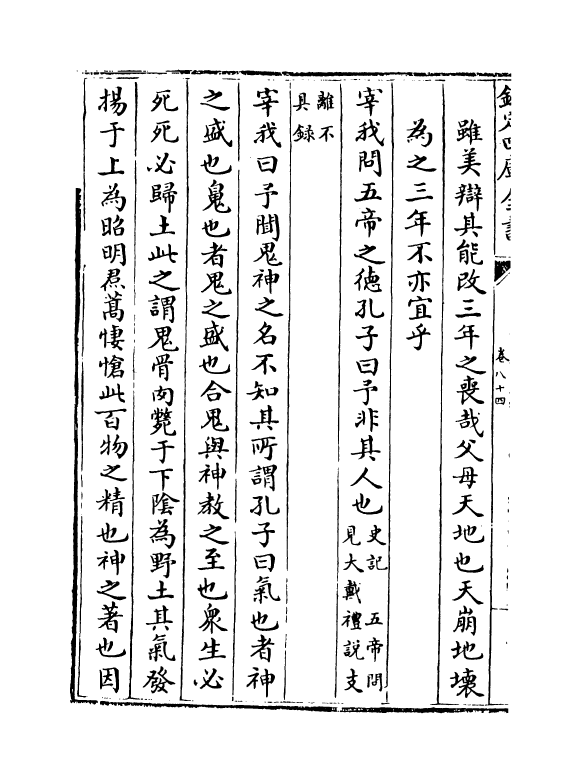 欽定四庫全書
卷八十四
雖美辯其能改三年之喪哉父母天地也天崩地壞
為之三年不亦宜乎
宰我問五帝之徳孔子曰予非其人也
史記 五帝問
見大戴禮說支
離不
具録
宰我曰予聞鬼神之名不知其所謂孔子曰氣也者神
之盛也魄也者鬼之盛也合鬼與神教之至也衆生必
死死必歸土此之謂鬼骨肉斃于下陰為野土其氣發
揚于上為昭明焄蒿悽愴此百物之精也神之著也因